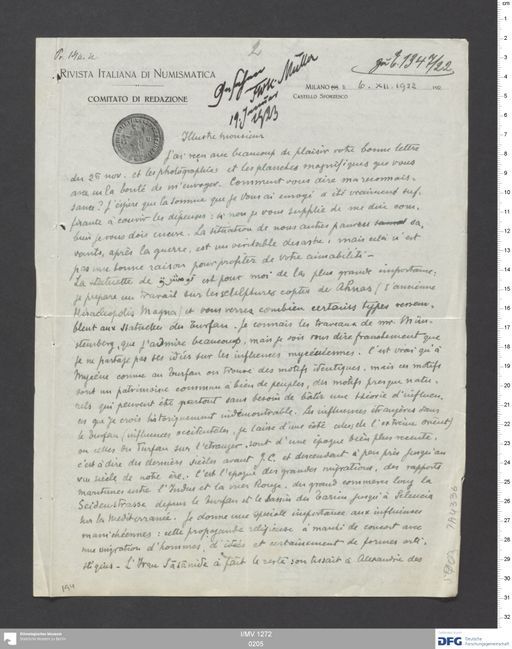 Pr. 14a. u
2
gu E. 1347/22
RIVISTA ITALIANA DI NUMISMATICA
COMITATO DI REDAZIONE
MILANO 6. XII. 1922
CASTELLO SFORZESCO
F.W.K. Müller
19. Januar
1923
Illustre monsieur
J'ai reçu avec beaucoup de plaisir votre bonne lettre
du 25 nov. et les photographies et les planches magnifiques que vous
avez eu la bonté de m'envoyer. Comment vous dire ma reconnais-
sance? J'éspère que la somme que je vous ai envoyé a été vraiment suf-
fisante à couvrir les dépenses: si non je vous supplie de me dire com-
bien je vous dois encore. La situation de nous autres pauvres sa-
vants, après la guerre, est un véritable desastre, mais celà n'est
pas une bonne raison pour profiter de votre aimabilité -
La statuette de est pour moi de la plus grande importance:
je prepare un travail sur les sculptures coptes de Ahnas (l'ancienne
Heracleopolis Magna) et vous verrez combien certains types ressem-
blent aux statuettes du Turfan. Je connais les travaux de mr. Mün-
sterberg, que j'admire beaucoup, mais je dois vous dire franchement que
je ne partage pas ses idées sur les influences mycéniennes. C'est vrai qu'à
Mycène comme au Turfan on trouve des motifs identiques, mais ces motifs
sont un patrimoine commun à bien de peuples, des motifs presque natu-
rels qui peuvent être partout sans besoin de bâtir une théorie d'influen-
ces que je crois historiquement indémontrable. Les influences étrangères dans
le Turfan (influences occidentales, je laisse d'une côté celles de l'extrème orient)
ou celles du Turfan sur l'étranger sont d'une époque bien plus recente,
c'est à dire des derniers siècles avant J.C. et descendant à peu près jusqu'au
VII siècle de notre ère: c'est l'époque des grandes migrations, des rapports
maritimes entre l'Indus et la mer Rouge, du grand commerce long la
Seidenstrasse depuis le Turfan et le bassin du Tarim jusqu'à Seleucia
sur la Mediterranée. Je donne une spéciale importance aux influences
manichéennes: cette propagande religieuse a marché de concert avec
une migration d'hommes, d'idées et certainement de formes arti-
stiques - L'Iran Sâsânide a fait le reste: on tissait à Alexandrie des
194
I/MV 1272
0205
Ethnologisches Museum
Staatliche Museen zu Berlin
DFG
Deutsche
Forschungsgemeinschaft